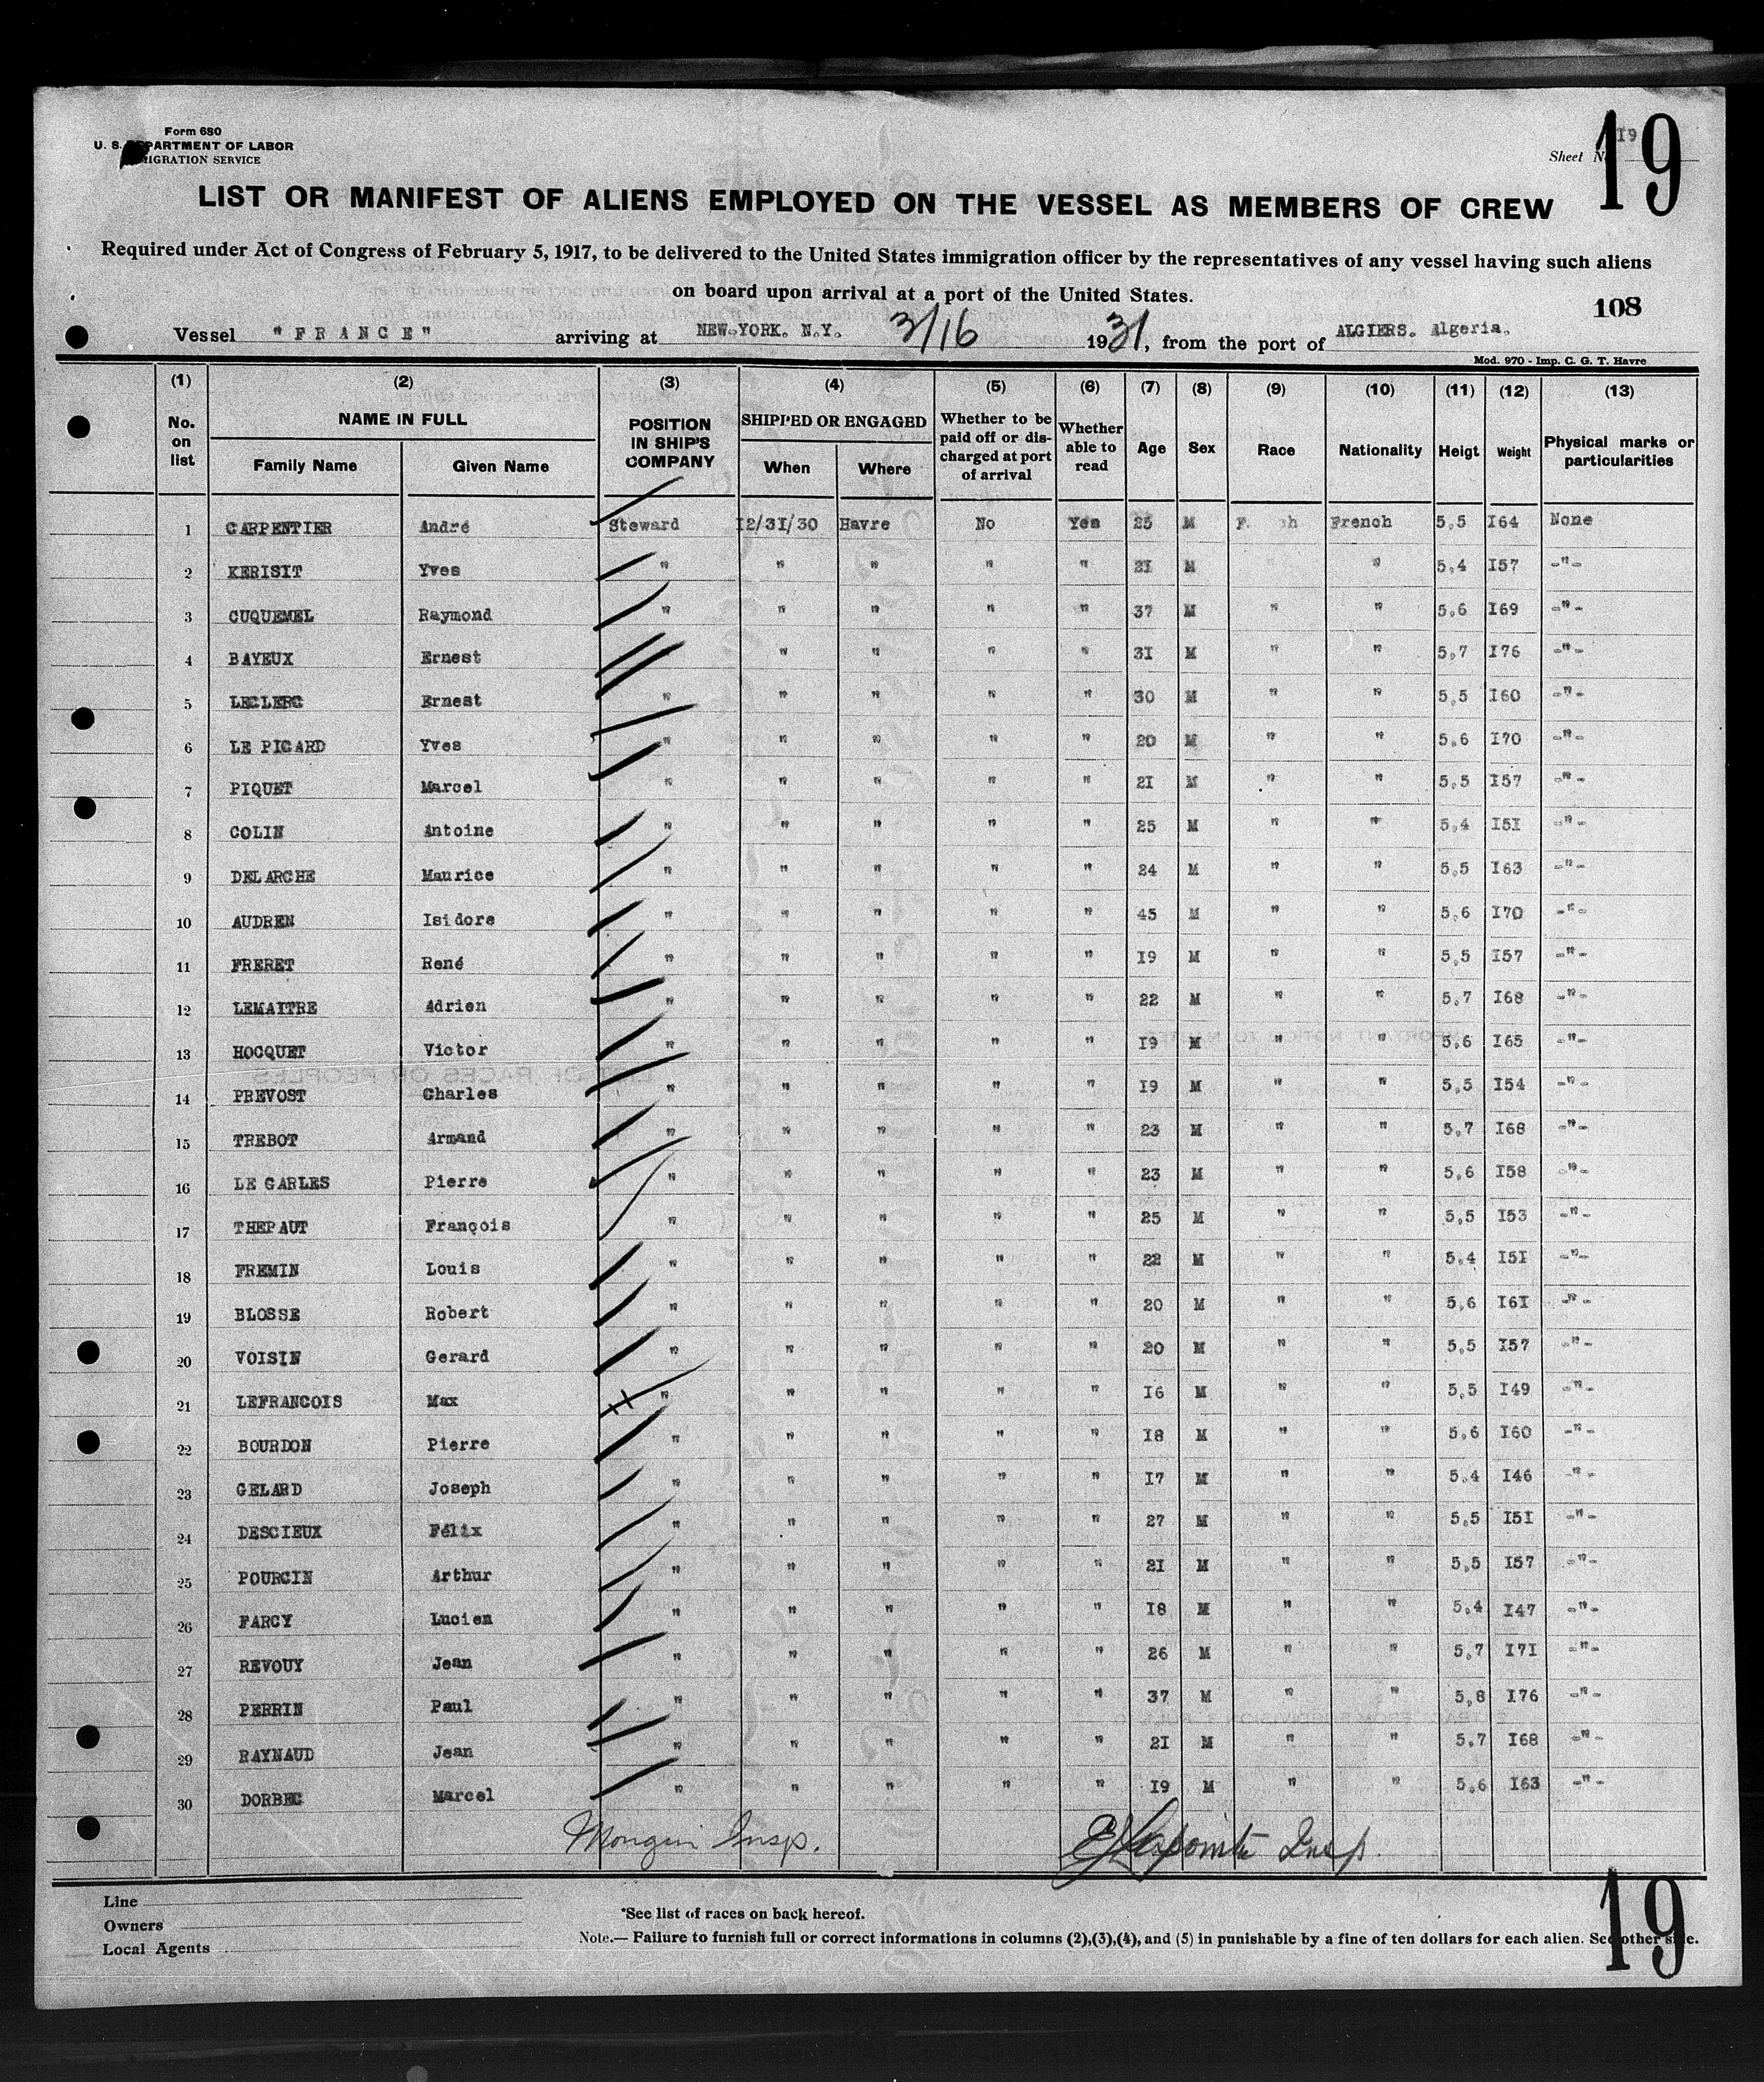 Form 680
U. S. DEPARTMENT OF LABOR
IMMIGRATION SERVICE
Sheet No. 19
19
LIST OR MANIFEST OF ALIENS EMPLOYED ON THE VESSEL AS MEMBERS OF CREW
Required under Act of Congress of February 5, 1917, to be delivered to the United States immigration officer by the representatives of any vessel having such aliens
on board upon arrival at a port of the United States.
108
Vessel "FRANCE" arriving at NEW-YORK. N.Y. 3/16 1931, from the port of ALGIERS. Algeria.
Mod. 970 - Imp. C. G. T. Havre
(1) (2) (3) (4) (5) (6) (7) (8) (9) (10) (11) (12) (13)
No. on list NAME IN FULL Family Name Given Name POSITION IN SHIP'S COMPANY SHIPPED OR ENGAGED When Where Whether to be paid off or discharged at port of arrival Whether able to read Age Sex Race Nationality Heigt Weight Physical marks or particularities
1 CARPENTIER André Steward 12/31/30 Havre No Yes 25 M French 5,5 164 None
2 KERISIT Yves " " " " " 21 M " 5,4 157 -"-
3 CUQUEMEL Raymond " " " " " 37 M " " 5,6 169 -"-
4 BAYEUX Ernest " " " " 31 M " " 5,7 176 -"-
5 LECLERC Ernest " " " " " 30 M " " 5,5 160 -"-
6 LE PICARD Yves " " " " " 20 M " " 5,6 170 -"-
7 PIQUET Marcel " " " " " 21 M " " 5,5 157 -"-
8 COLIN Antoine " " " " " 25 M " " 5,4 151 -"-
9 DELARCHE Maurice " " " " " 24 M " " 5,5 163 -"-
10 AUDREN Isidore " " " " " 45 M " " 5,6 170 -"-
11 FRERET René " " " " " 19 M " " 5,5 157 -"-
12 LEMAITRE Adrien " " " " " 22 M " " 5,7 168 -"-
13 HOCQUET Victor " " " " " 19 M " " 5,6 165 -"-
14 PREVOST Charles " " " " " 19 M " " 5,5 154 -"-
15 TREBOT Armand " " " " " 23 M " " 5,7 168 -"-
16 LE GARLES Pierre " " " " " 23 M " " 5,6 158 -"-
17 THEPAUT François " " " " " 25 M " " 5,5 153 -"-
18 FREMIN Louis " " " " " 22 M " " 5,4 151 -"-
19 BLOSSE Robert " " " " " 20 M " " 5,6 161 -"-
20 VOISIN Gerard " " " " " 20 M " " 5,5 157 -"-
21 LEFRANCOIS Max " " " " " 16 M " " 5,5 149 -"-
22 BOURDON Pierre " " " " " 18 M " " 5,6 160 -"-
23 GELARD Joseph " " " " " 17 M " " 5,4 146 -"-
24 DESCIEUX Félix " " " " " 27 M " " 5,5 151 -"-
25 POURCIN Arthur " " " " " 21 M " " 5,5 157 -"-
26 FARCY Lucien " " " " " 18 M " " 5,4 147 -"-
27 REVOUY Jean " " " " " 26 M " " 5,7 171 -"-
28 PERRIN Paul " " " " " 37 M " " 5,8 176 -"-
29 RAYNAUD Jean " " " " 21 M " " 5,7 168 -"-
30 DORBEC Marcel " " " " " 19 M " " 5,6 163 -"-
Mongin Insp. Lapointe Insp.
Line
Owners
Local Agents
*See list of races on back hereof.
Note.— Failure to furnish full or correct informations in columns (2),(3),(4), and (5) in punishable by a fine of ten dollars for each alien. See other side.
19